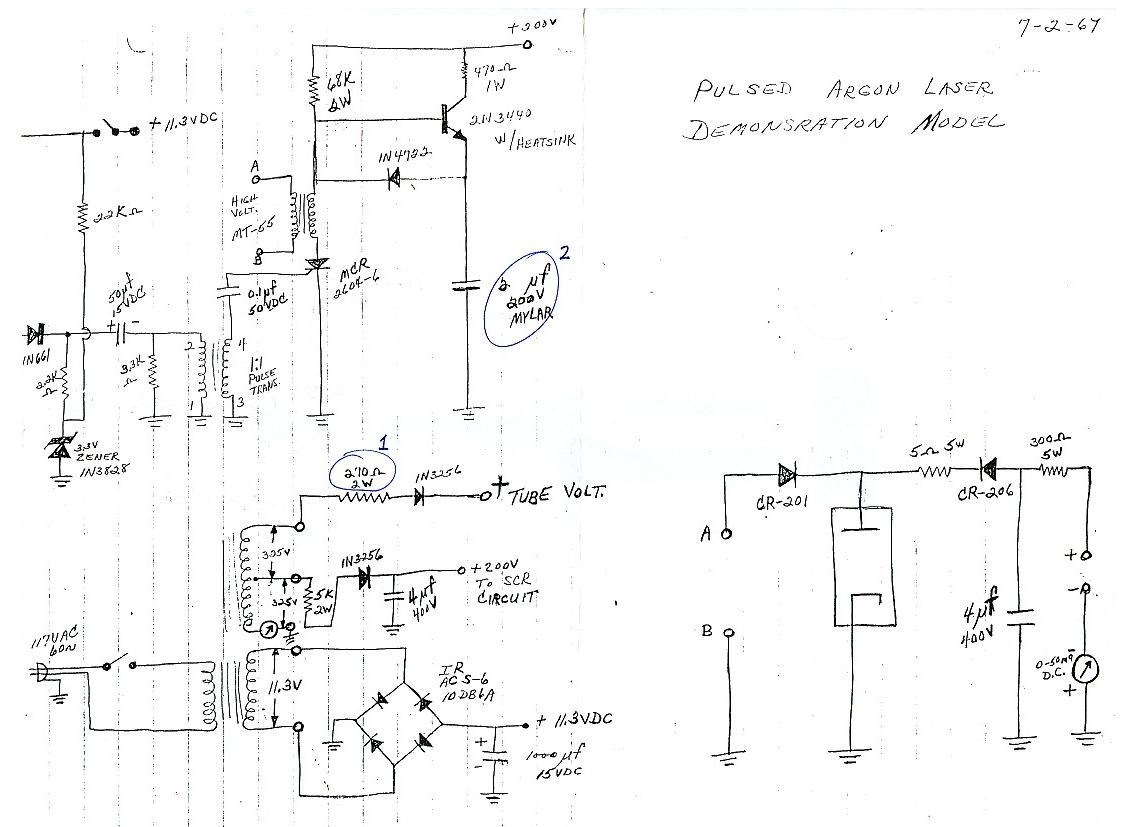 7-2-67
PULSED ARGON LASER
DEMONSRATION MODEL
+200V
470Ω
1W
68K
2W
2N3440
W/HEATSINK
+11.3VDC
1N4722
A
HIGH
VOLT.
MT-55
B
2.2KΩ
MCR
2604-6
0.1µf
50VDC
2
2 µf
200V
MYLAR
50µf
15VDC
+
-
1N661
2.2K
Ω
3.3K
Ω
2
4
1:1
PULSE
TRANS.
1
3
3.3V
ZENER
1N3828
1
270Ω
2W
1N3256
+ TUBE VOLT.
325V
325V
5K
2W
1N3256
4µf
400V
+200V
TO SCR
CIRCUIT
117VAC
60N
11.3V
IR
ACS-6
10DB6A
+ 11.3VDC
+
-
1000µf
15VDC
5Ω 5W
300Ω
5W
CR-201
CR-206
A
+
-
B
4µf
400V
-
D.C.
+